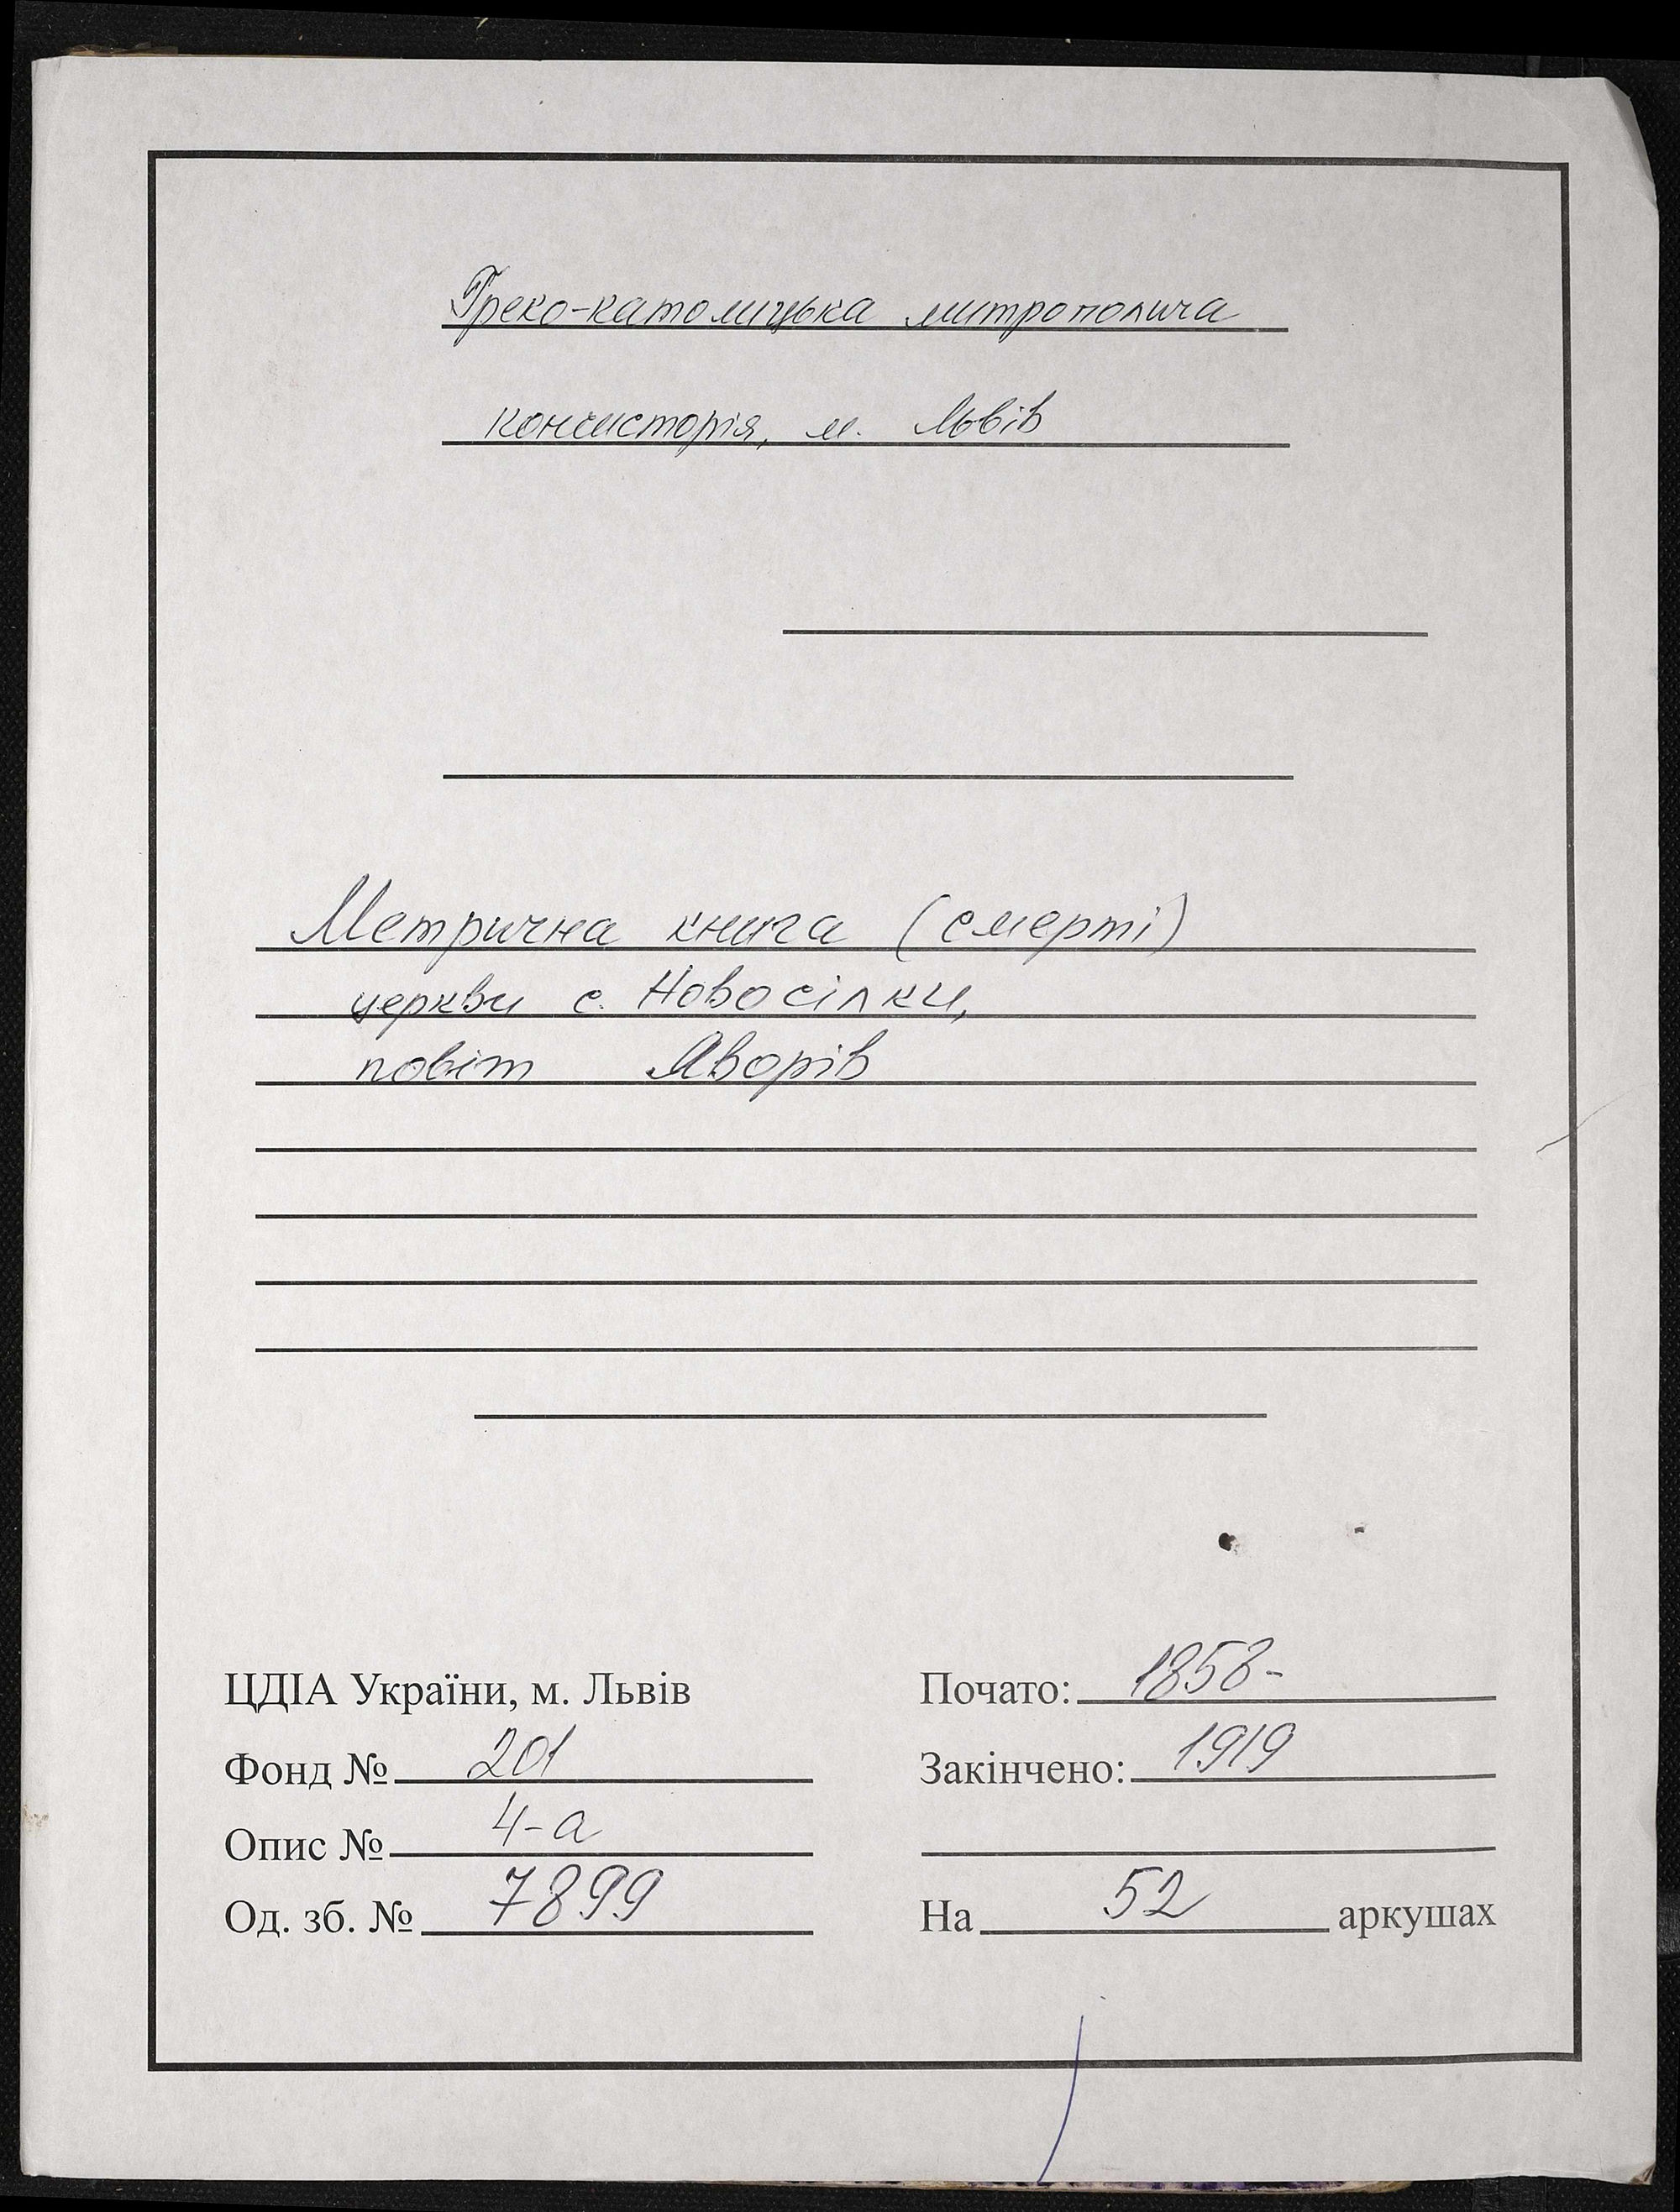 Греко-католицька митрополича
консисторія, м. Львів
Метрична книга (смерті)
церкви с. Новосілки,
повіт Яворів
ЦДІА України, м. Львів
Фонд № 201
Опис № 4-а
Од. зб. № 7899
Почато: 1858-
Закінчено: 1919
На 52 аркушах